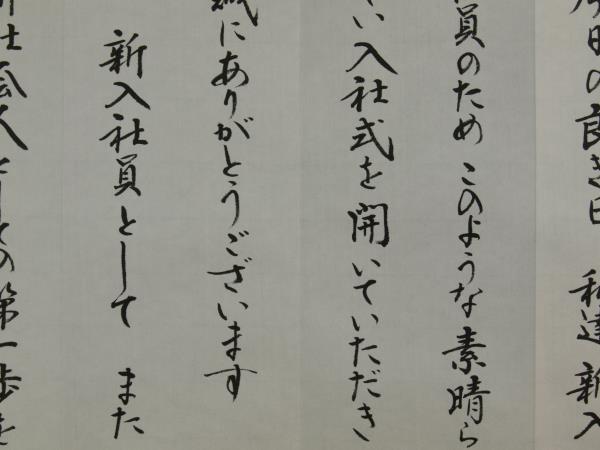 今日の良き日 私達新入
員のため このような素晴ら
い入社式を開いていただき
誠にありがとうございます
新入社員として また
社会人としての第一歩を